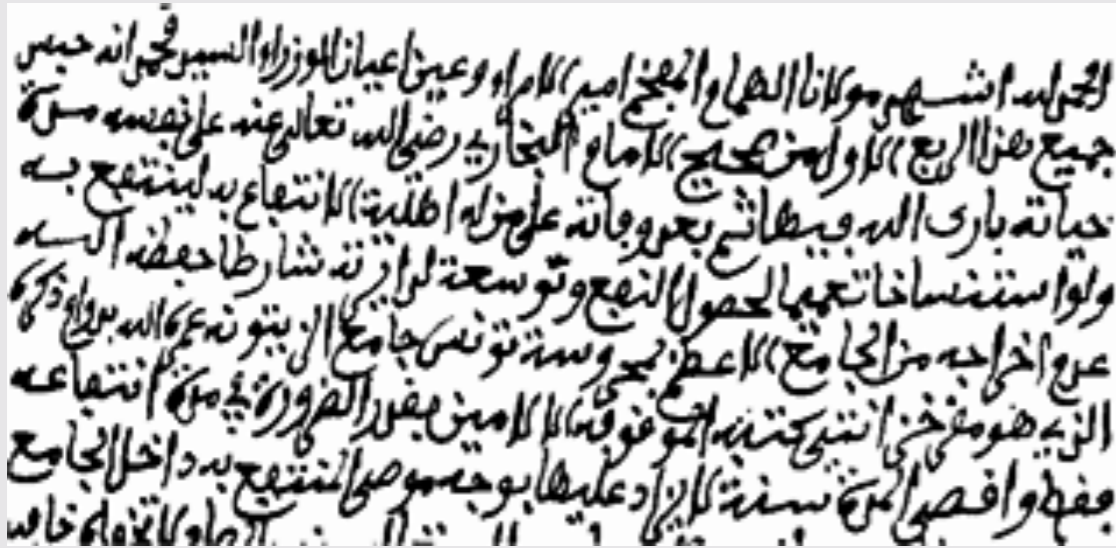 الحمد لله اشهد مولانا الهمام المفخم امير الامراء وعين اعيان الوزراء السيد محمد انه حبس
جميع هذا الربع الاول من صحيح الامام البخاري رضي الله تعالى عنه على نفسه مدة
حياته بارك الله فيها ثم بعد وفاته على من له اهلية الانتفاع به لينتفع به
ولو استنساخا تعميما لحصول النفع وتوسعة لدائرته شارطا حفظه الله
عدم اخراجه من الجامع الاعظم بمحروسة تونس جامع الزيتونة عمره الله بدوام ذكره
الذي هو مقر خزائن كتبه الموقوفة الا لامين بقدر الضرورة في مدة انتفاعه
فقط واقصى المدة سنة لا يزاد عليها بوجه موصى المنتفع به داخل الجامع